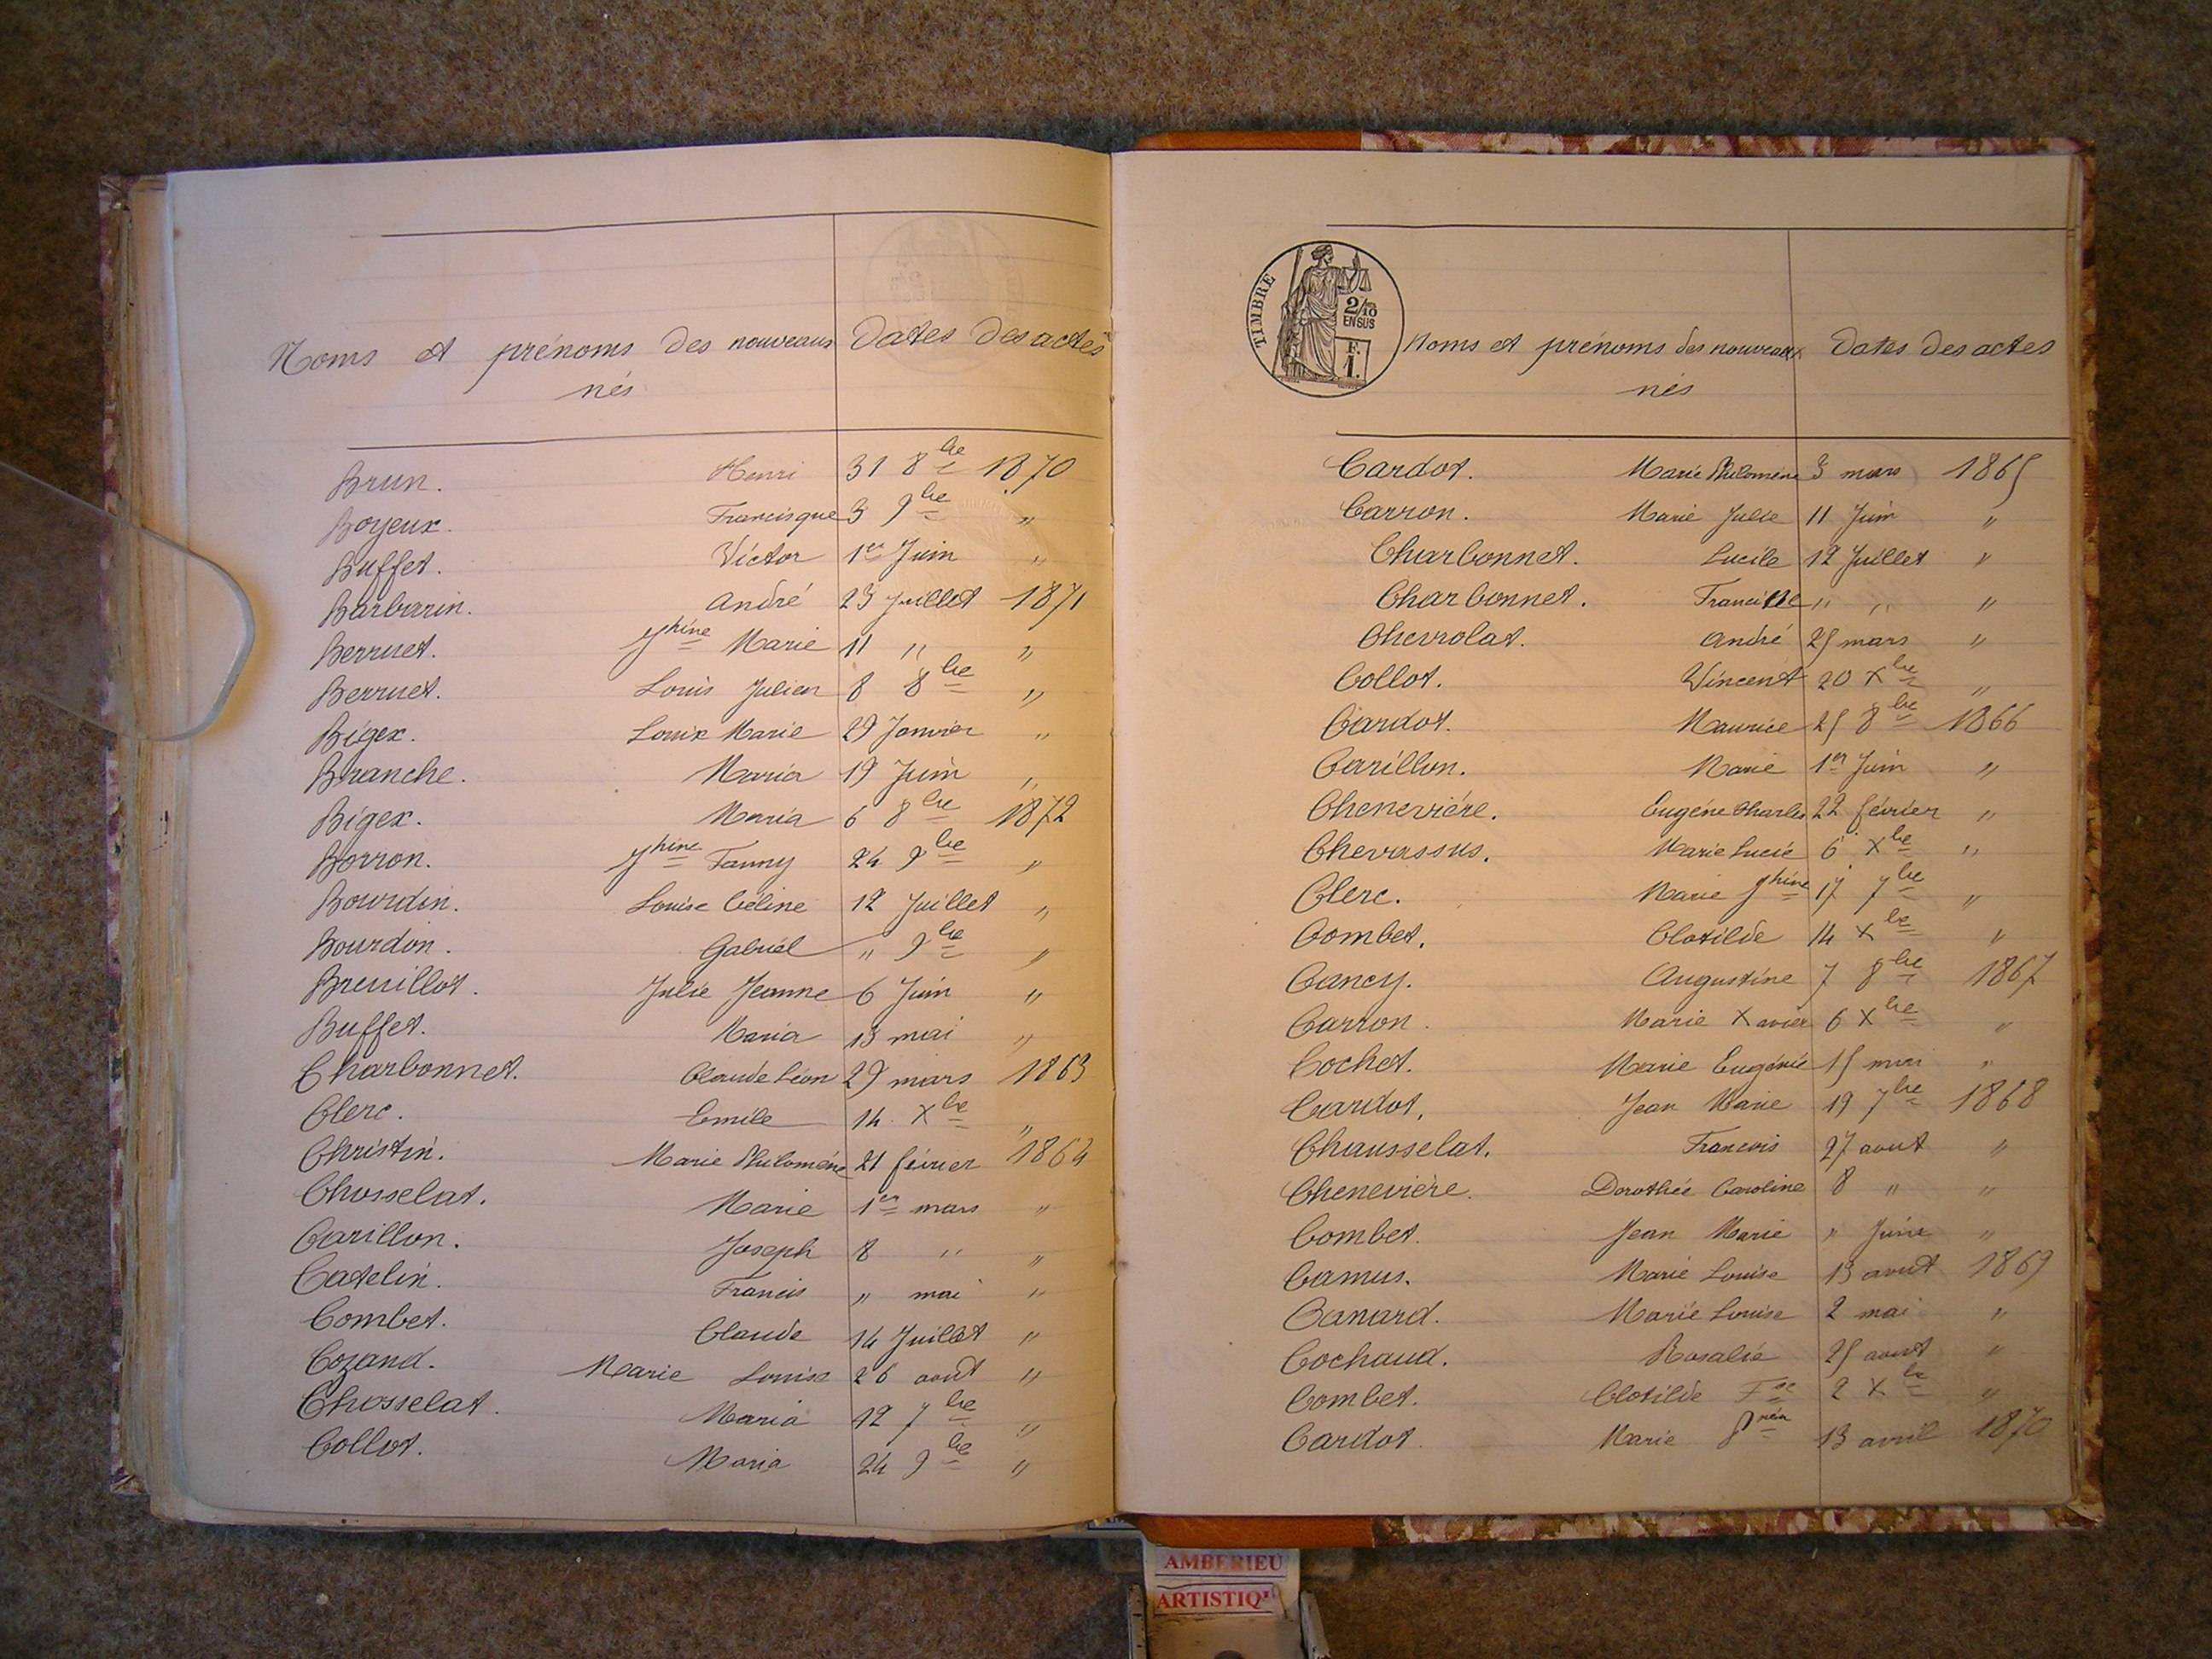 Noms et prénoms des nouveaux Dates des actes
nés
Brun. Henri 31 8bre 1870
Boyeux. Francisque 3 9bre "
Buffet. Victor 1er Juin "
Barbarin. André 23 Juillet 1871
Berruet. Jhine Marie 11 " "
Berruet. Louis Julien 8 8bre "
Bigex. Louix Marie 29 Janvier "
Branche. Maria 19 Juin "
Bigex. Maria 6 8bre 1872
Borron. Jhine Fanny 24 9bre "
Bourdin. Louise Céline 12 Juillet "
Bourdon. Gabriel " 9bre "
Breuillot. Julie Jeanne 6 Juin "
Buffet. Maria 13 mai "
Charbonnet. Claude Léon 29 mars 1863
Clerc. Emile 14 Xbre "
Christin. Marie Philoméne 21 février 1864
Chosselat. Marie 1er mars "
Carillon. Joseph 8 " "
Catelin. Francis " mai "
Combet. Claude 14 Juillet "
Cozand. Marie Louise 26 août "
Chosselat. Maria 12 7bre "
Collot. Maria 24 9bre "
TIMBRE
2/10
EN SUS
F.
1.
Noms et prénoms des nouveaux Dates des actes
nés
Cardot. Marie Philoméne 3 mars 1865
Carron. Marie Julie 11 Juin "
Charbonnet. Lucile 12 Juillet "
Charbonnet. " " "
Chevrolat. André 25 mars "
Collot. Vincent 20 Xbre "
Cardot. Maurice 25 8bre 1866
Carillon. Marie 1er Juin "
Chenevière. Eugéne Charles 22 février "
Chevassus. Marie Lucie 6 Xbre "
Clerc. Marie Jhine 17 7bre "
Combet. Clotilde 14 Xbre "
Cancy. Augustine 7 8bre 1867
Carron. Marie Xavier 6 Xbre "
Cochet. Marie Eugénie 15 mai "
Cardot. Jean Marie 19 7bre 1868
Chausselat. Francois 27 aout "
Chenevière. Dorothée Caroline 8 " "
Combet. Jean Marie " Juin "
Camus. Marie Louise 13 aout 1869
Canard. Marie Louise 2 mai "
Cochaud. Rosalie 25 aout "
Combet. Clotilde 2 Xbre "
Cardot. Marie 13 avril 1870
AMBERIEU
ARTISTIQ